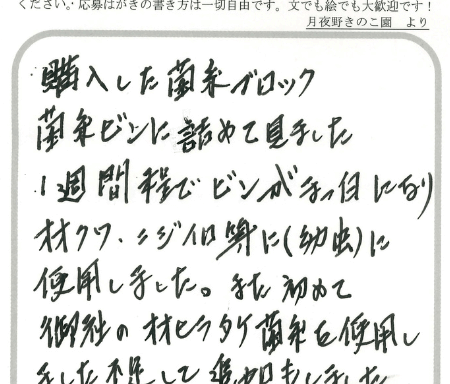 ください。応募はがきの書き方は一切自由です。文でも絵でも大歓迎です！
月夜野きのこ園　より
購入した菌糸ブロック
菌糸ビンに詰めて見ました
1週間程でビンがまっ白になり
オオクワ、ニジイロ等に(幼虫)に
使用しました。また初めて
御社のオオヒラタケ菌糸を使用し
ました 不足して追加もしました